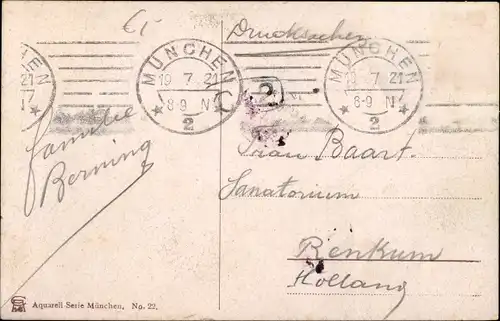 65
Drucksachen
MÜNCHEN
19 7 21
8-9 N
2
MÜNCHEN
19 7 21
8-9 N
2
Familie
Berning
Frau Baart.
Sanatorium
Renkum
Holland
Aquarell-Serie München, No. 22.